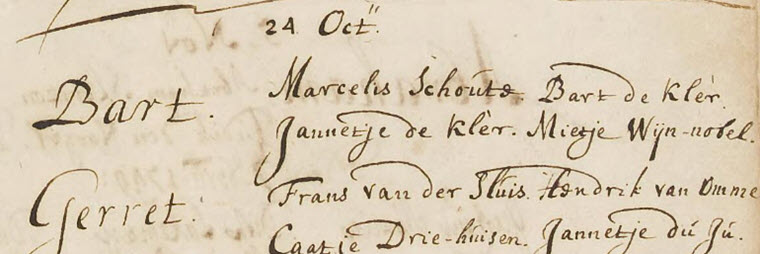 24 Oct:
Bart.
Marcelis Schoute. Bart de Klèr.
Jannetje de Klèr. Mietje Wijn-nobel.
Gerret:
Frans van der Sluis. Hendrik van Omme
Caatje Drie-huisen. Jannetje du Ju.